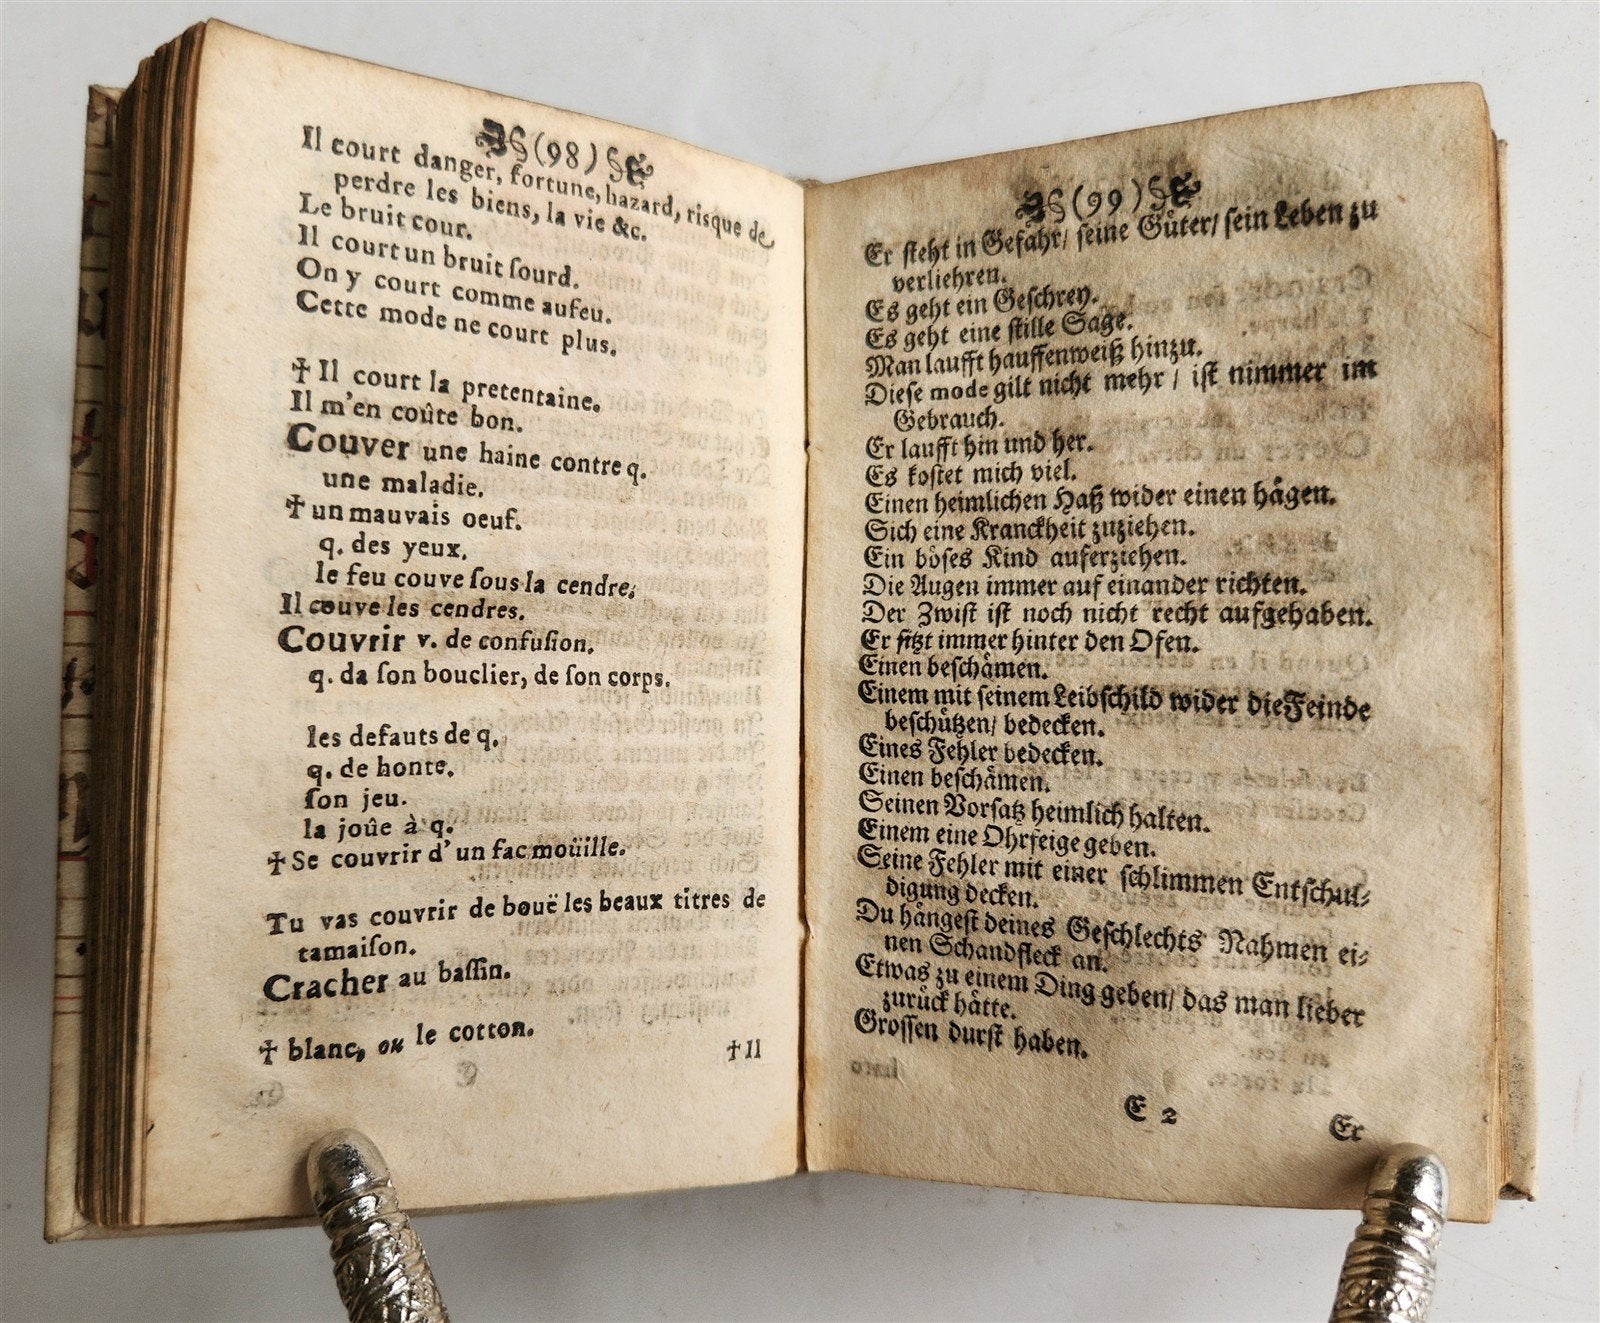 (98)
Il court danger, fortune, hazard, risque de
perdre les biens, la vie &c.
Le bruit cour.
Il court un bruit ſourd.
On y court comme aufeu.
Cette mode ne court plus.
✝ Il court la pretentaine.
Il m'en coûte bon.
Couver une haine contre q.
une maladie.
✝ un mauvais oeuf.
q. des yeux.
le feu couve ſous la cendre;
Il couve les cendres.
Couvrir v. de confuſion.
q. da ſon bouclier, de ſon corps.
les defauts de q.
q. de honte.
ſon jeu.
la joûe à q.
✝ Se couvrir d'un fac moüille.
Tu vas couvrir de bouë les beaux titres de
tamaiſon.
Cracher au baſſin.
✝ blanc, ou le cotton.
✝ Il
(99)
Er ſteht in Gefåhr/ ſeine Gůter/ ſein Leben zu
verliehren.
Es geht ein Geſchrey.
Es geht eine ſtille Sage.
Man laufft hauffenweiß hinzu.
Dieſe mode gilt nicht mehr / iſt nimmer im
Gebrauch.
Er laufft hin und her.
Es koſtet mich viel.
Einen heimlichen Haß wider einen hågen.
Sich eine Kranckheit zuziehen.
Ein bôſes Kind auferziehen.
Die Augen immer auf einander richten.
Der Zwiſt iſt noch nicht recht aufgehaben.
Er ſitzt immer hinter den Ofen.
Einen beſchåmen.
Einem mit ſeinem Leibſchild wider die Feinde
beſchützen/ bedecken.
Eines Fehler bedecken.
Einen beſchåmen.
Seinen Vorſatz heimlich halten.
Einem eine Ohrfeige geben.
Seine Fehler mit einer ſchlimmen Entſchul⸗
digung decken.
Du hångeſt deines Geſchlechts Nahmen ei⸗
nen Schandfleck an.
Etwas zu einem Ding geben/ das man lieber
zurůck håtte.
Groſſen durſt haben.
E 2
Er